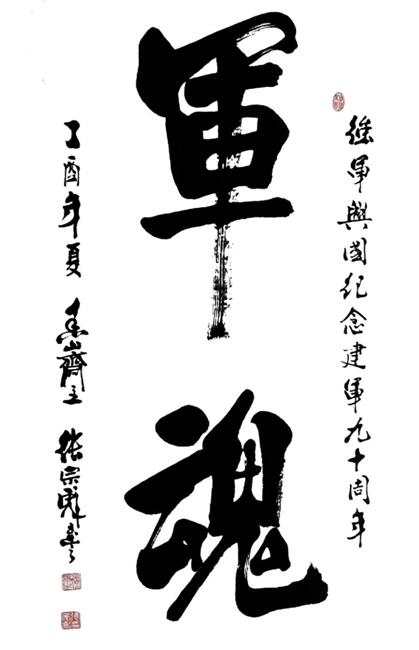 強軍興國紀念建軍九十周年
軍魂
丁酉年夏 山齋主 張宗書